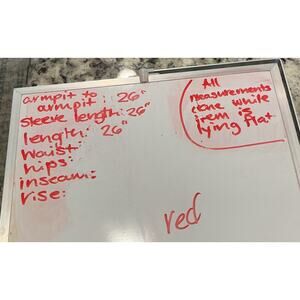 armpit to
armpit: 26"
sleeve length: 26"
length: 26"
waist:
hips:
inseam:
rise:
All
measurements
done while
item is
lying flat
red